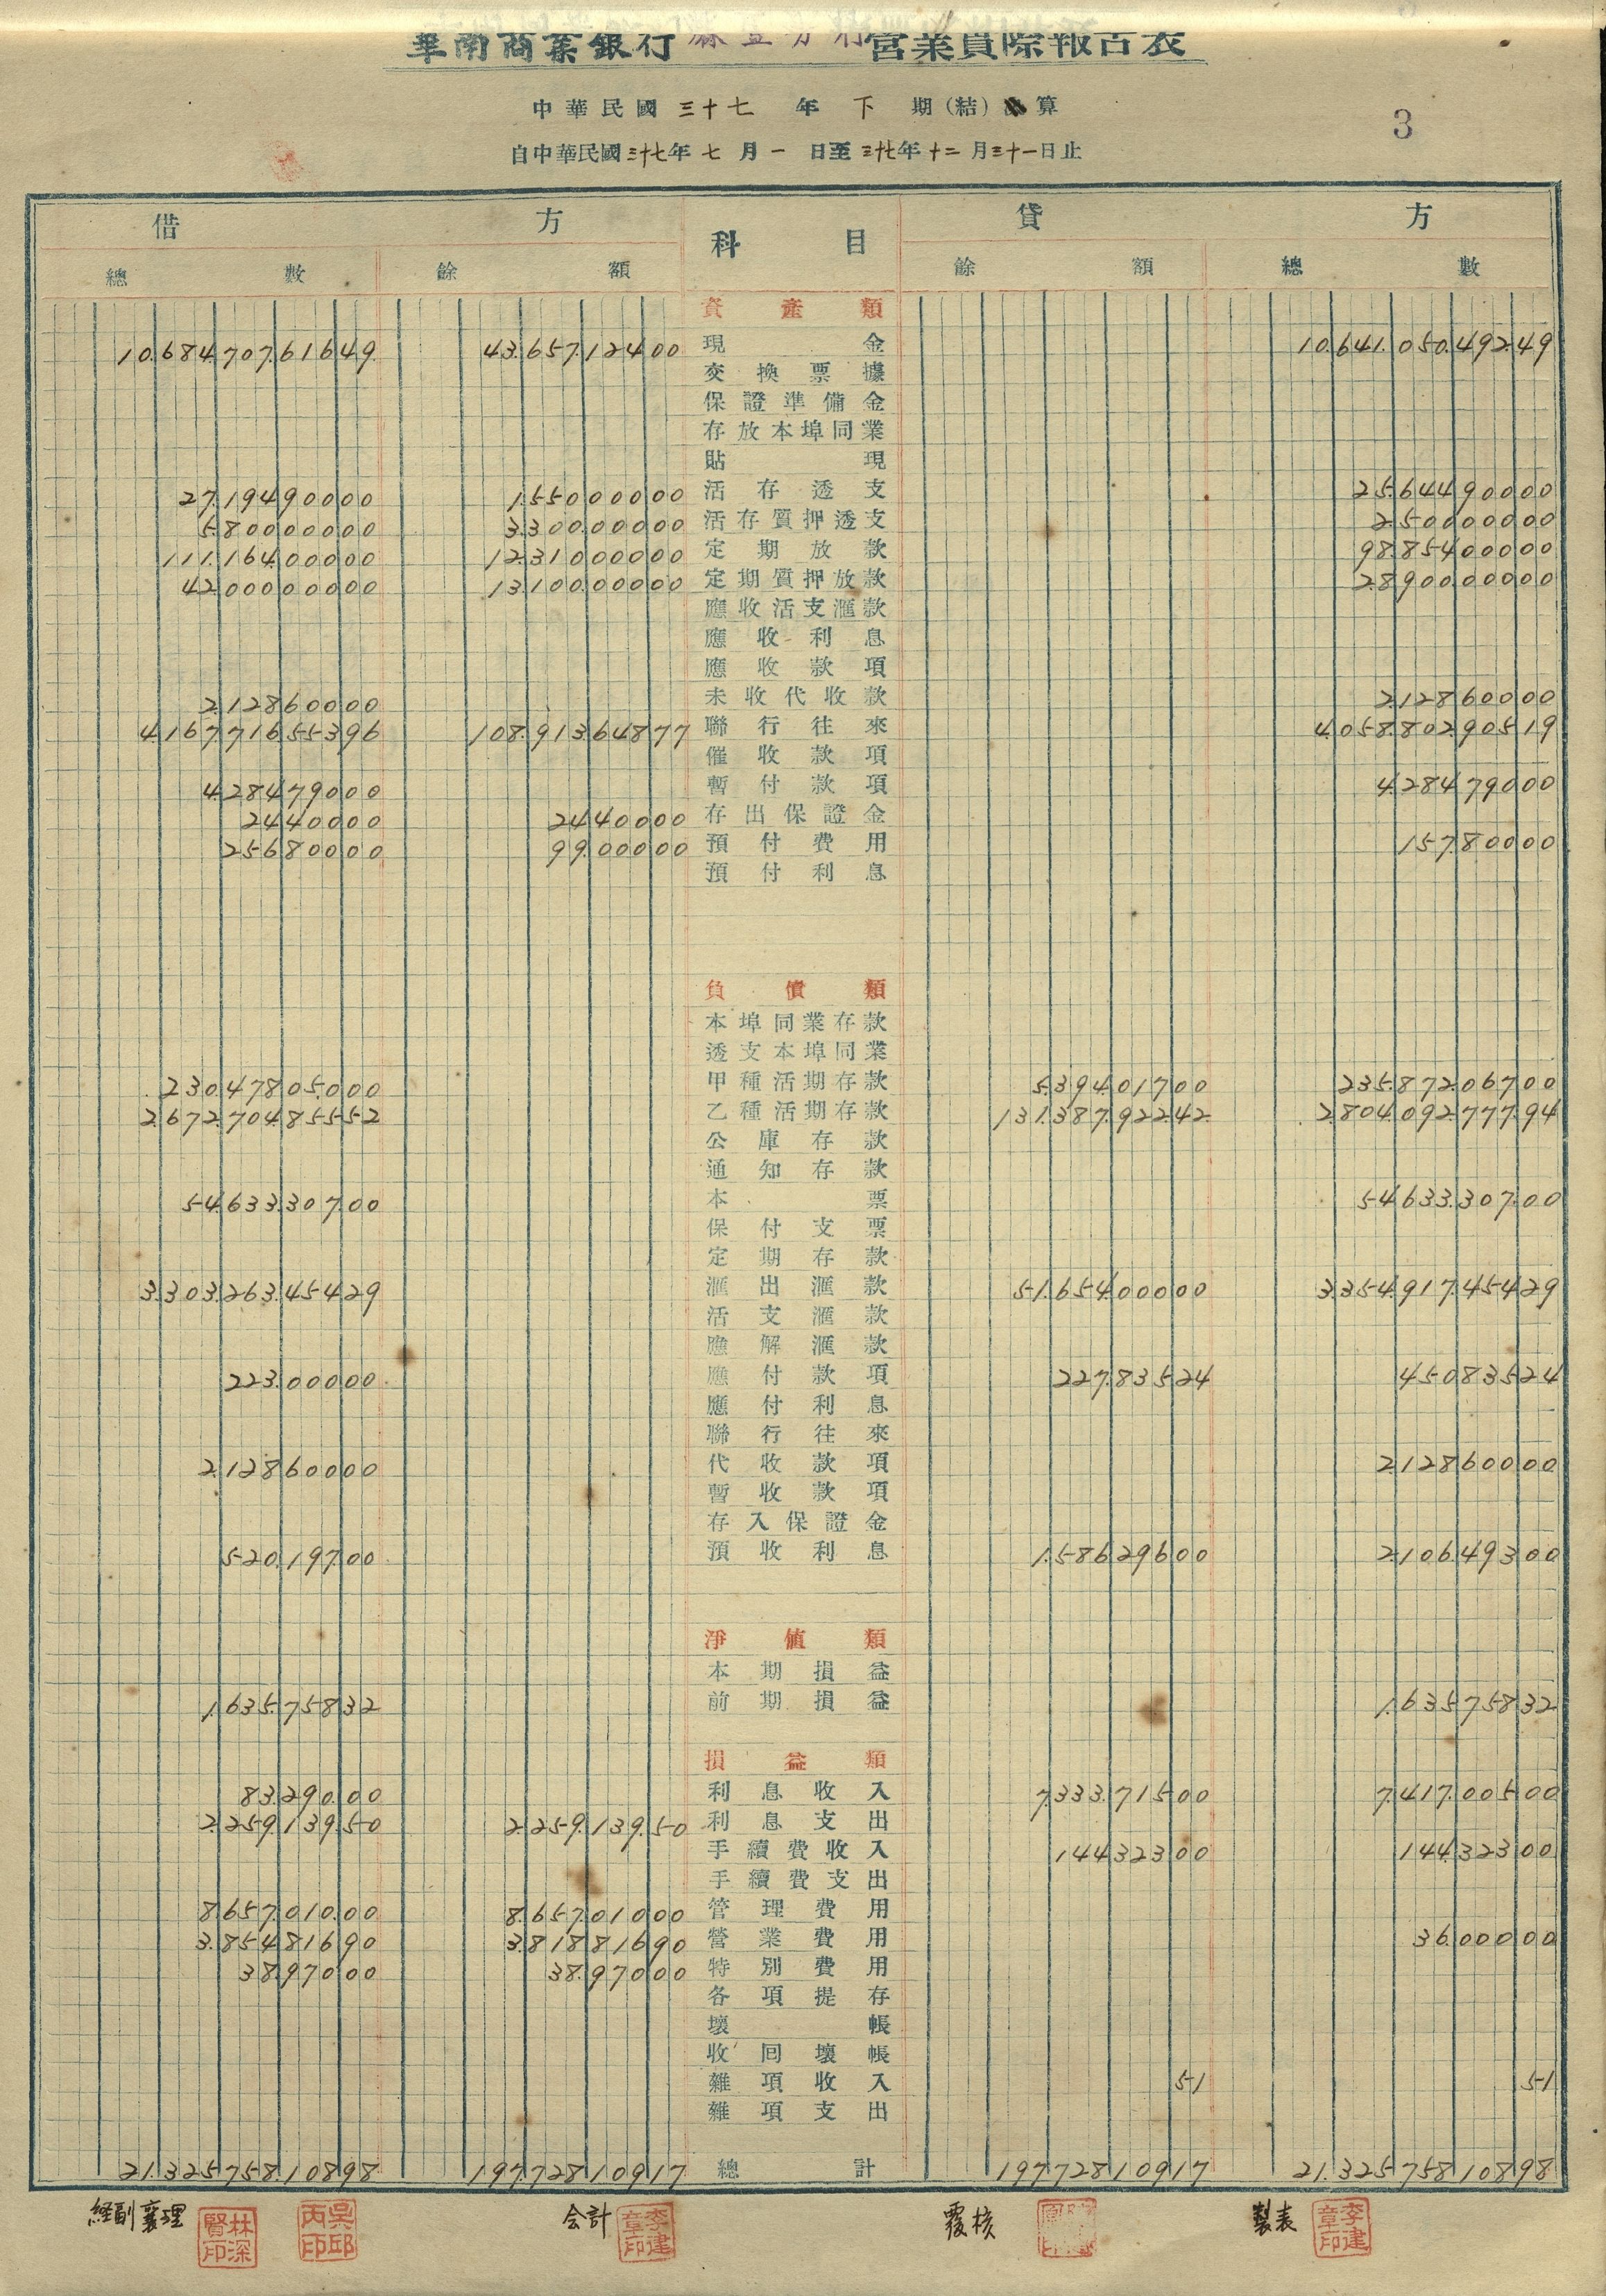 華南商業銀行 營業實際報告表
中華民國三十七年下期(結)算
自中華民國三十七年七月一日至三十七年十二月三十一日止
3
借方 科目 貸方
總數 餘額 餘額 總數
資產類
10.684.707.616.49 43.657.124.00 現金 10.641.050.492.49
交換票據
保證準備金
存放本埠同業
貼現
27.194.900.00 1.550.000.00 活存透支 25.644.900.00
5.800.000.00 3.300.000.00 活存質押透支 2.500.000.00
111.164.000.00 12.310.000.00 定期放款 98.854.000.00
42.000.000.00 13.100.000.00 定期質押放款 28.900.000.00
應收活支滙款
應收利息
應收款項
2.128.600.00 未收代收款 2.128.600.00
4.167.716.553.96 108.913.648.77 聯行往來 4.058.802.905.19
催收款項
4.284.790.00 暫付款項 4.284.790.00
24.400.00 24.400.00 存出保證金
256.800.00 99.000.00 預付費用 157.800.00
預付利息
負債類
本埠同業存款
透支本埠同業
230.478.050.00 甲種活期存款 5.394.017.00 235.872.067.00
2.672.704.855.52 乙種活期存款 131.387.922.42 2.804.092.777.94
公庫存款
通知存款
54.633.307.00 本票 54.633.307.00
保付支票
定期存款
3.303.263.454.29 滙出滙款 51.654.000.00 3.354.917.454.29
活支滙款
應解滙款
223.000.00 應付款項 227.835.24 450.835.24
應付利息
聯行往來
2.128.600.00 代收款項 2.128.600.00
暫收款項
存入保證金
520.197.00 預收利息 1.586.296.00 2.106.493.00
淨值類
本期損益
1.635.758.32 前期損益 1.635.758.32
損益類
83.290.00 利息收入 7.333.715.00 7.417.005.00
2.259.139.50 2.259.139.50 利息支出
手續費收入 144.323.00 144.323.00
手續費支出
8.657.010.00 8.657.010.00 管理費用
3.854.816.90 3.818.816.90 營業費用 36.000.00
38.970.00 38.970.00 特別費用
各項提存
壞帳
收回壞帳
雜項收入 51 51
雜項支出
21.325.758.108.98 197.728.109.17 總計 197.728.109.17 21.325.758.108.98
経副襄理 林深賢印 吳邱丙印 会計 李建章印 覆核 製表 李建章印